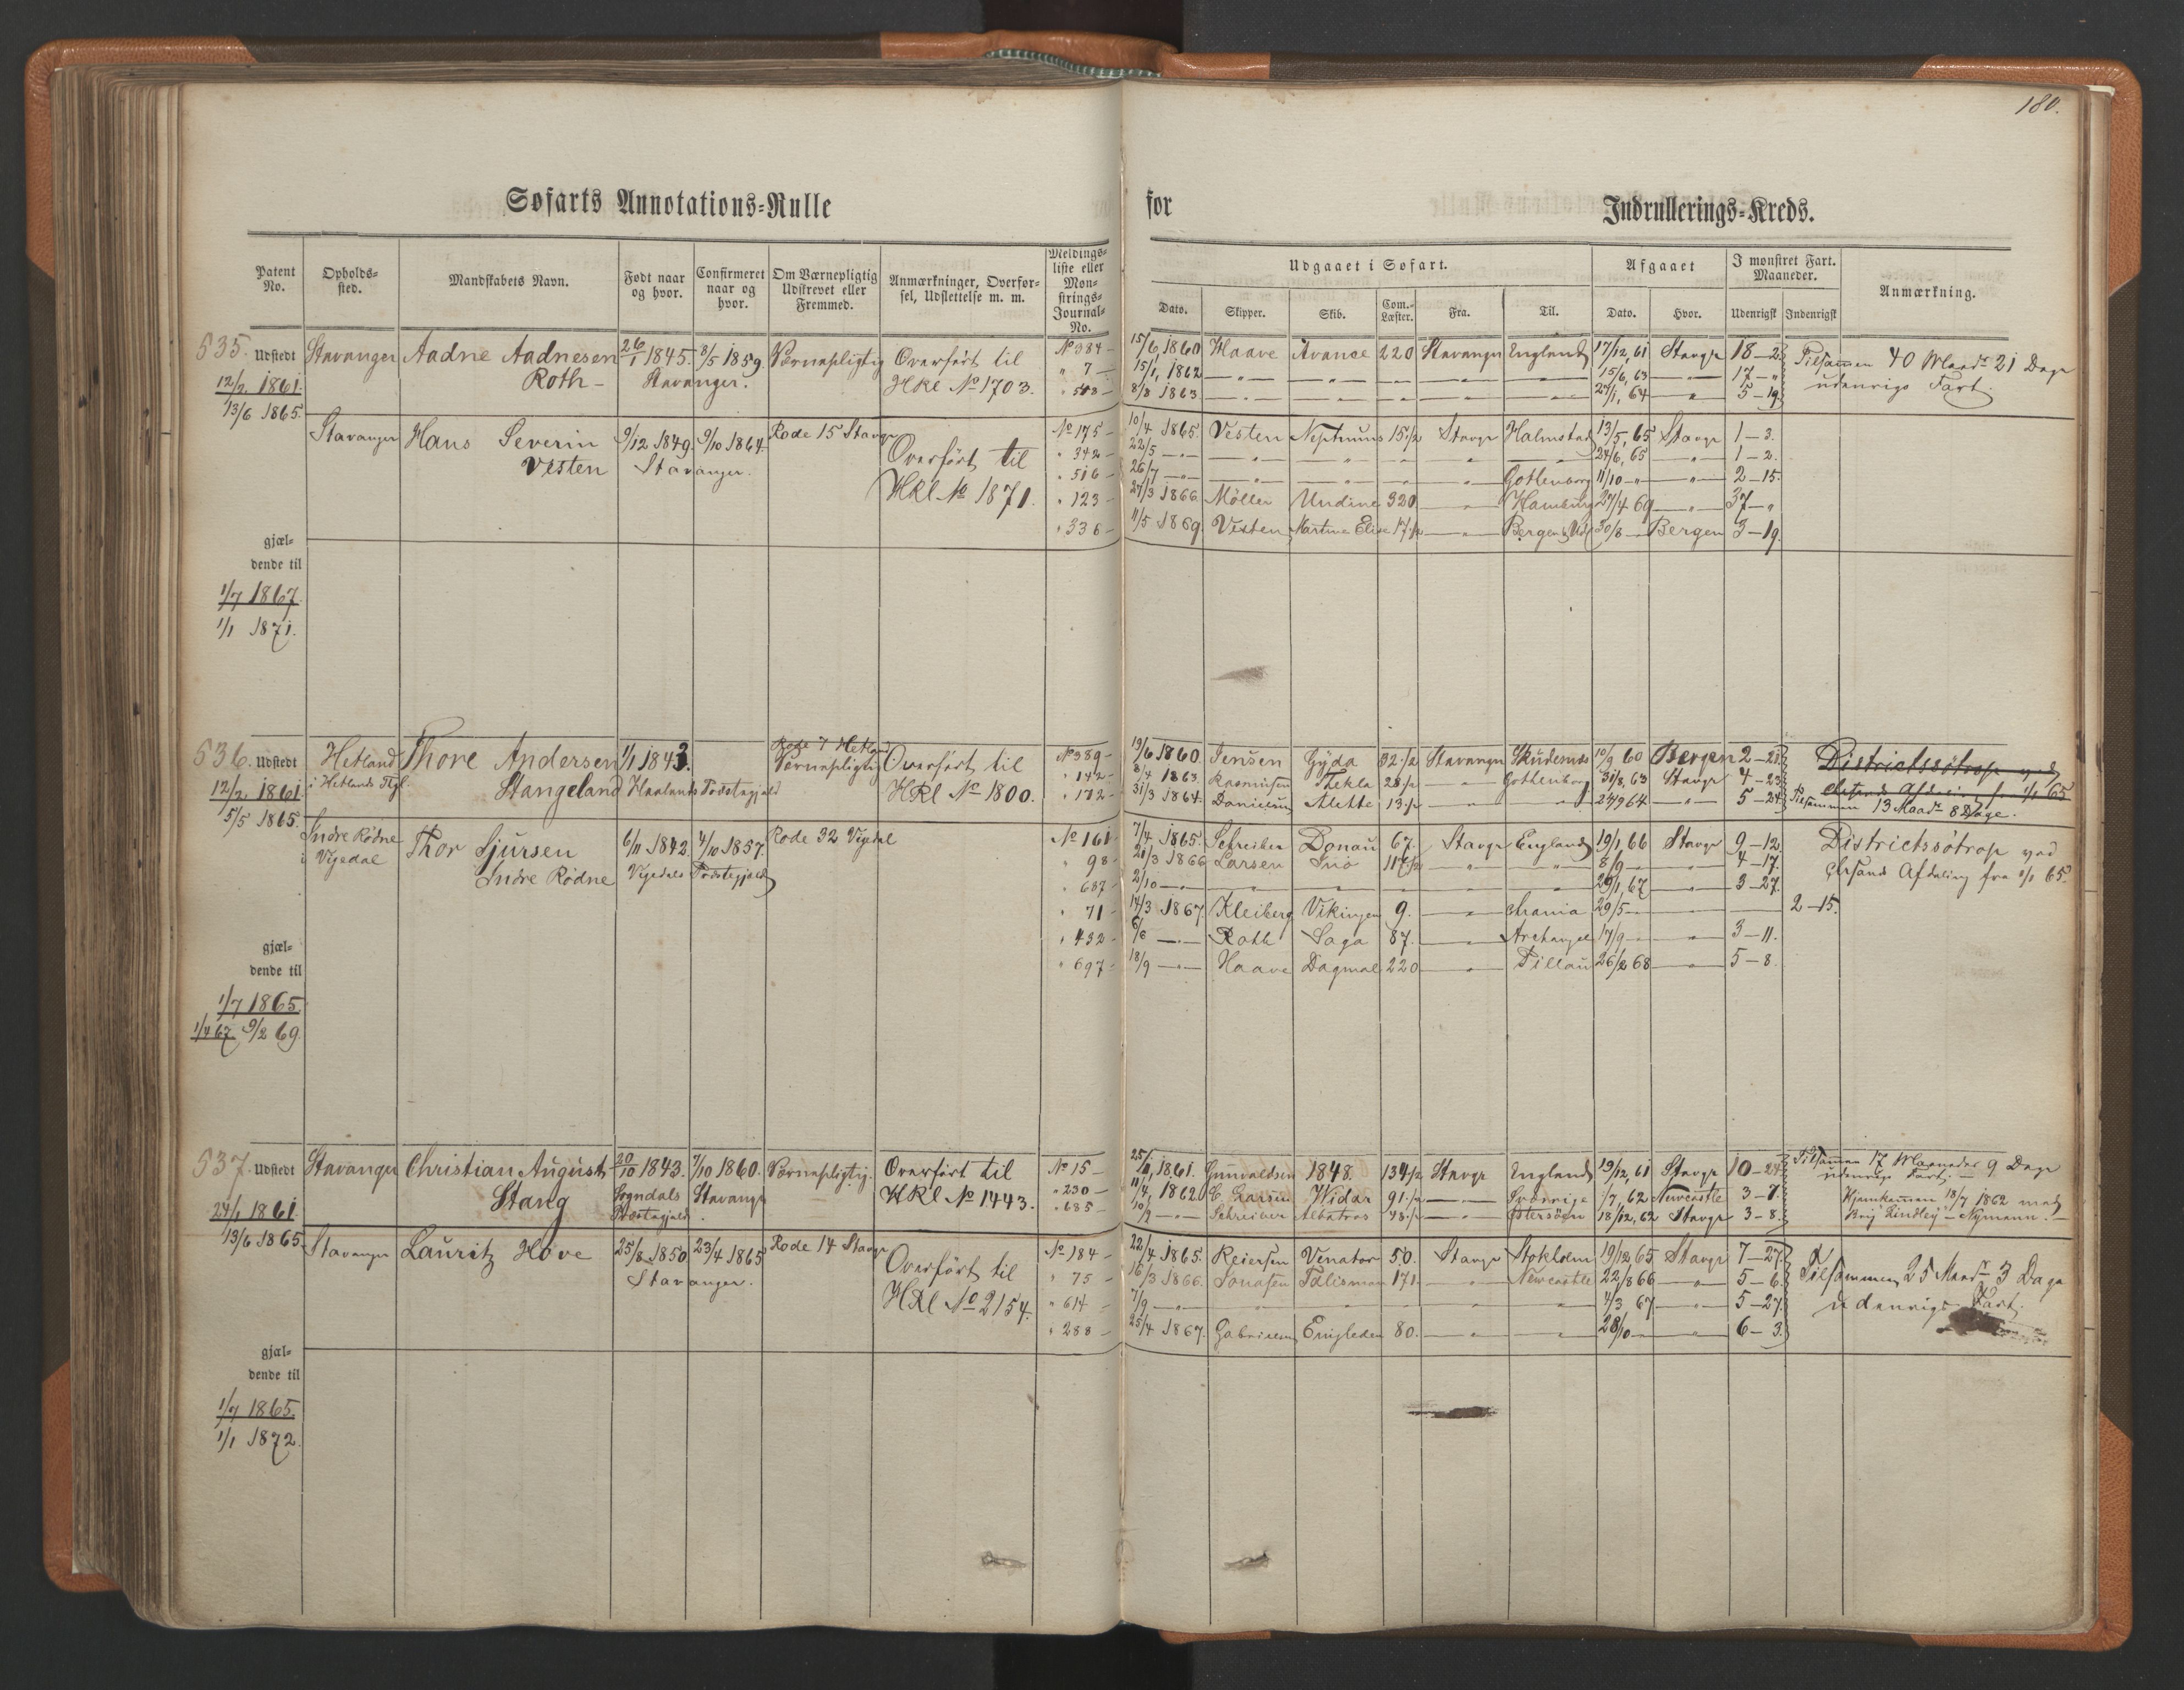 180.
Søfarts Annotations-Rulle for Indrullerings-Kreds.
Patent No. Opholds-sted. Mandskabets Navn. Født naar og hvor. Confirmeret naar og hvor. Om Værnepligtig Udskrevet eller Fremmed. Anmærkninger, Overførsel, Udslettelse m. m. Meldings-liste eller Mønstrings-Journal-No.
Udgaaet i Søfart. Afgaaet I mønstret Fart. Maaneder. Anmærkning.
Dato. Skipper. Skib. Com.-Læster. Fra. Til. Dato. Hvor. Udenrigsk Indenrigsk
535. Udstedt Stavanger Aadne Aadnesen 26/1 1845. 8/5 1859. Værnepligtig Overført til No 384 15/6 1860 Haave Avance 220 Stavanger England 17/12 61 Stavgr 18-2. Tilsammen 40 Maadr 21 Dage
12/2 1861. Roth Stavanger. HRl No 1703. " 7 15/1 1862 15/6 63 17-" udenrigs Fart.
13/6 1865. 8/8 1863 27/1 64 5-19
Stavanger Hans Severin 9/12 1849. 9/10 1864. Rode 15 Stavgr Overført til No 175 10/4 1865. Vesten Neptunus 15 1/2 Stavgr Halmstad 13/5 65 Stavgr 1-3.
Vesten Stavanger. " 342 22/5 24/6 65 1-2.
HRl No 1871. " 516 26/7 Gothenborg 11/10 2-15.
" 123 27/3 1866. Möller Undine 320 Hamburg 27/4 69 37-"
" 336 11/5 1869. Vesten Martine Elise 17 1/2 Bergen 30/8 Bergen 3-19.
gjæl-
dende til
1/7 1867.
1/1 1871.
536. Udstedt Hetland Thore Andersen 1/1 1843. Rode 7 Hetland Værnepligtig Overført til No 389 19/6 1860. Jensen Gyda 32 1/2 Stavanger Skudesnæs 10/9 60 Bergen 2-21. Districtssøtrop ved
12/2 1861. i Hetlands Tgl. Stangeland Haalands Præstegjæld HRl No 1800. " 142 8/4 1863. Rasmussen Thekla 28 1/2 Gothenborg 31/8 63 Stavgr 4-23
5/5 1865. " 172 31/3 1864. Danielsen Alette 13 1/2 5-24 Tilsammen 13 Maadr 8 Dage.
Indre Rødne Thor Sjursen 6/11 1842. 4/10 1857. Rode 32 Vigedal No 161 7/4 1865. Schreiber Donau 67. Stavgr England 19/1 66 Stavgr 9-12. Districtssøtrop ved
i Vigedal Indre Rødne Vigedals Præstegjæld " 98 21/3 1866 Larsen Juno 117 1/2 8/9 4-17. Chrsands Afdeling fra 1/1 65.
" 687 2/10 29/1 67 3-27.
" 71 14/3 1867. Kleiberg Vikingen 9. Chrania 29/5 2-15.
" 432 6/6 Roth Saga 87. Archangel 17/9 3-11.
" 697 18/9 Haave Dagmar 220 Pillau 26/2 68 5-8.
gjæl-
dende til
1/7 1865.
1/7 67. 9/2 69.
537. Udstedt Stavanger Christian August 20/10 1843. 7/10 1860. Værnepligtig. Overført til No 15 25/1 1861. Gunvaldsen 1848. 134 1/2 Stavgr England 19/12 61 Stavgr 10-24 Tilsammen 17 Maaneder 9 Dage
24/1 1861. Stang Sogndals Stavanger HRl No 1443. " 230 11/4 1862 C. Larsen Widar 91 1/2 Sverrige 1/7 62 Newcastle 3-7. udenrigs Fart. Hjemkommen 18/7 1862 med
13/6 1865. Præstegjæld " 685 10/9 Schreiber Albatros 48 1/2 Østersøen 18/12 62 Stavgr 3-8. Brig Lindley Nymann.
Stavanger Lauritz Hove 25/8 1850 23/4 1865 Rode 14 Stavgr Overført til No 184 22/4 1865. Reiersen Venator 50. Stavgr Stokholm 19/12 65 Stavgr 7-27. Tilsammen 25 Maadr 3 Dage
Stavanger. HRl No 2154. " 75 16/3 1866. Jonasen Talisman 171 Newcastle 22/8 66 5-6. udenrigs Fart.
" 614 7/9 4/3 67 5-27.
" 288 25/4 1867. Gabrielsen Enigheden 80. 28/10 6-3.
gjæl-
dende til
1/7 1865.
1/1 1872.